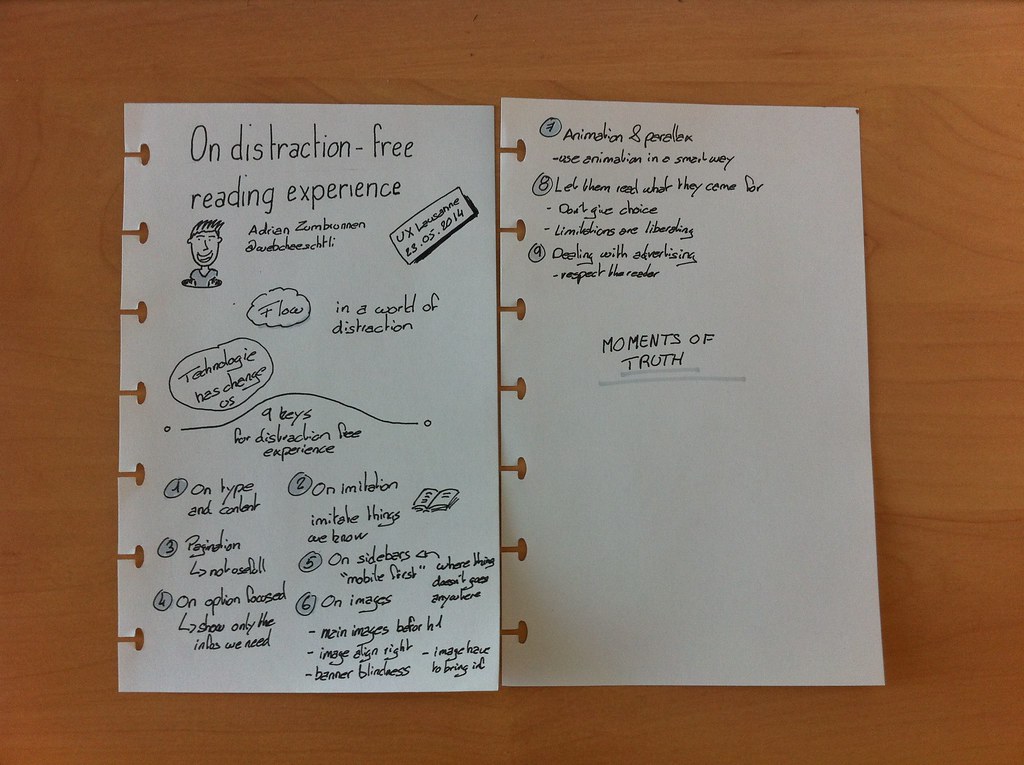 On distraction-free
reading experience
Adrian Zumbrunnen
@webcheeschtli
UX Lausanne
23.05.2014
Flow
in a world of
distraction
Technologie
has change
us
9 keys
for distraction free
experience
1 On type
and content
2 On imitation
imitate things
we know
3 Pagination
↳ not usefull
4 On option focused
↳ show only the
infos we need
5 On sidebars
"mobile first"
where thing
doesn't goes
anywhere
6 On images
- main images befor h1
- image align right
- banner blindness
- image have
to bring inf
7 Animation & parallax
- use animation in a smart way
8 Let them read what they came for
- Don't give choice
- Limitations are liberating
9 Dealing with advertising
- respect the reader
MOMENTS OF
TRUTH